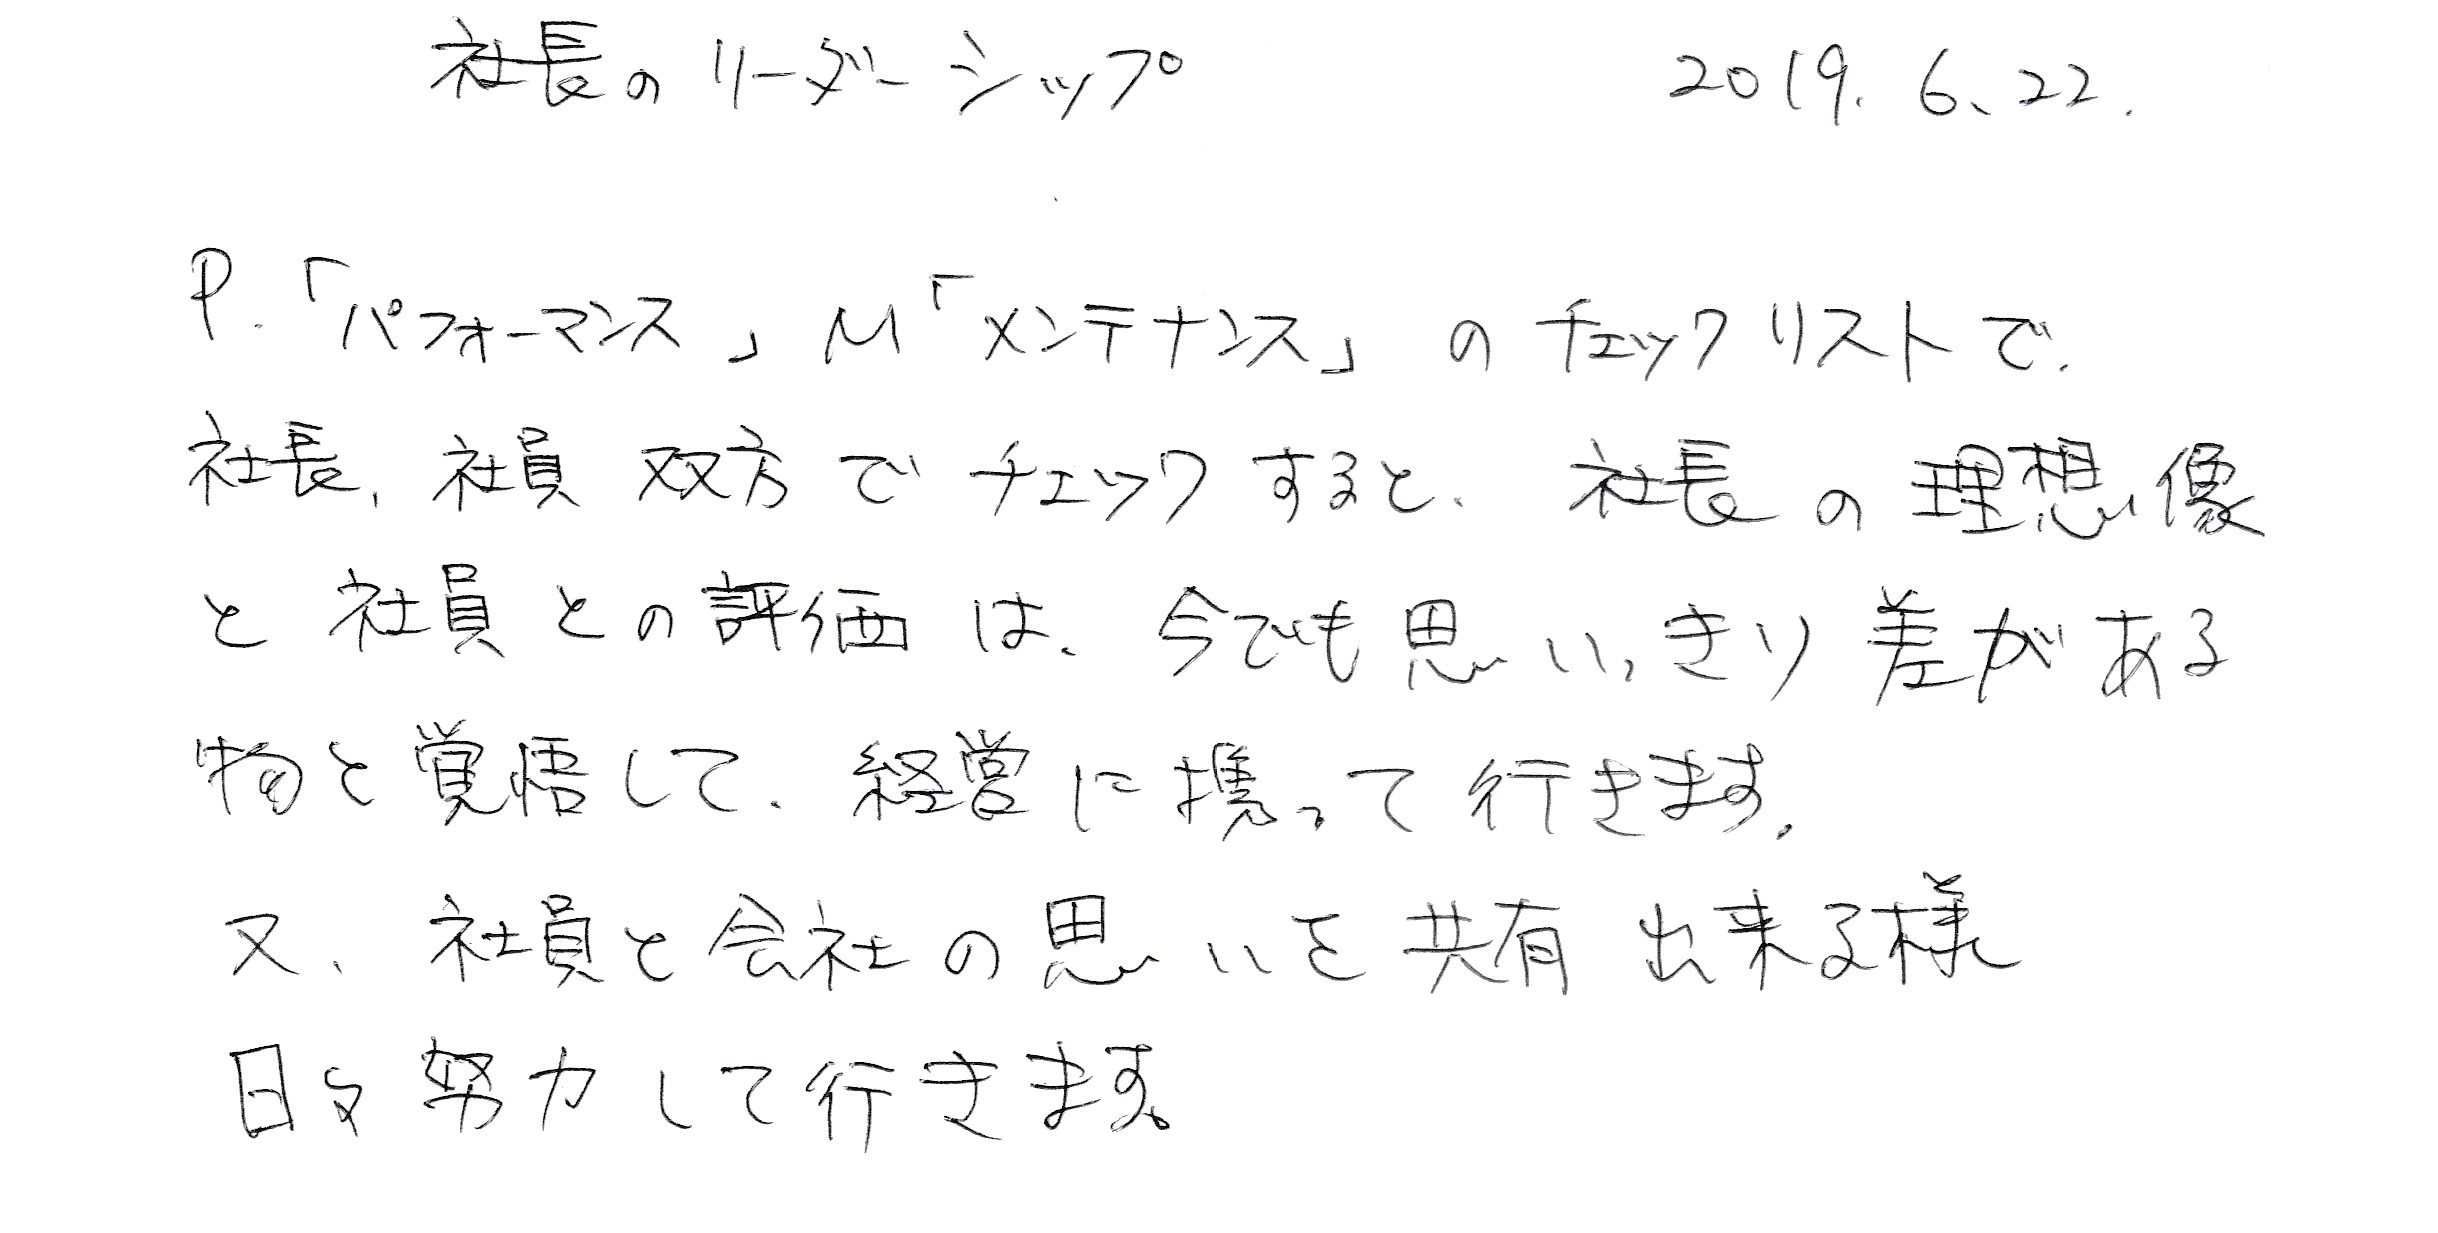 社長のリーダーシップ 2019.6.22.
P.「パフォーマンス」M「メンテナンス」のチェックリストで、
社長、社員双方でチェックすると、社長の理想像
と社員との評価は、今でも思いっきり差がある
物と覚悟して、経営に携って行きます。
又、社員と会社の思いを共有出来る様
日々努力して行きます。